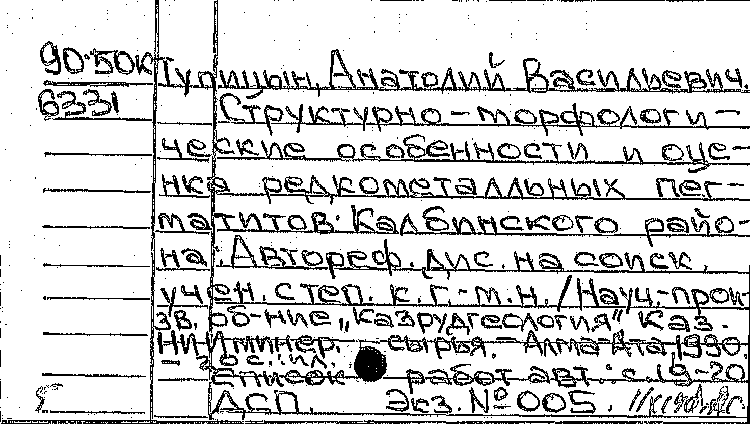 90-50К Тупицын, Анатолий Васильевич.
6331 Структурно-морфологи-
ческие особенности и оце-
нка редкометалльных пег-
матитов Калбинского райо-
на: Автореф. дис. на соиск.
учен. степ. к. г.-м. н. / Науч.-прои
зв. об-ние „Казрудгеология“ Каз.
НИИминер. сырья. - Алма-Ата, 1990.
- 20 с.: ил.
Список работ авт.: с. 19-20
ДСП. Экз. № 005.